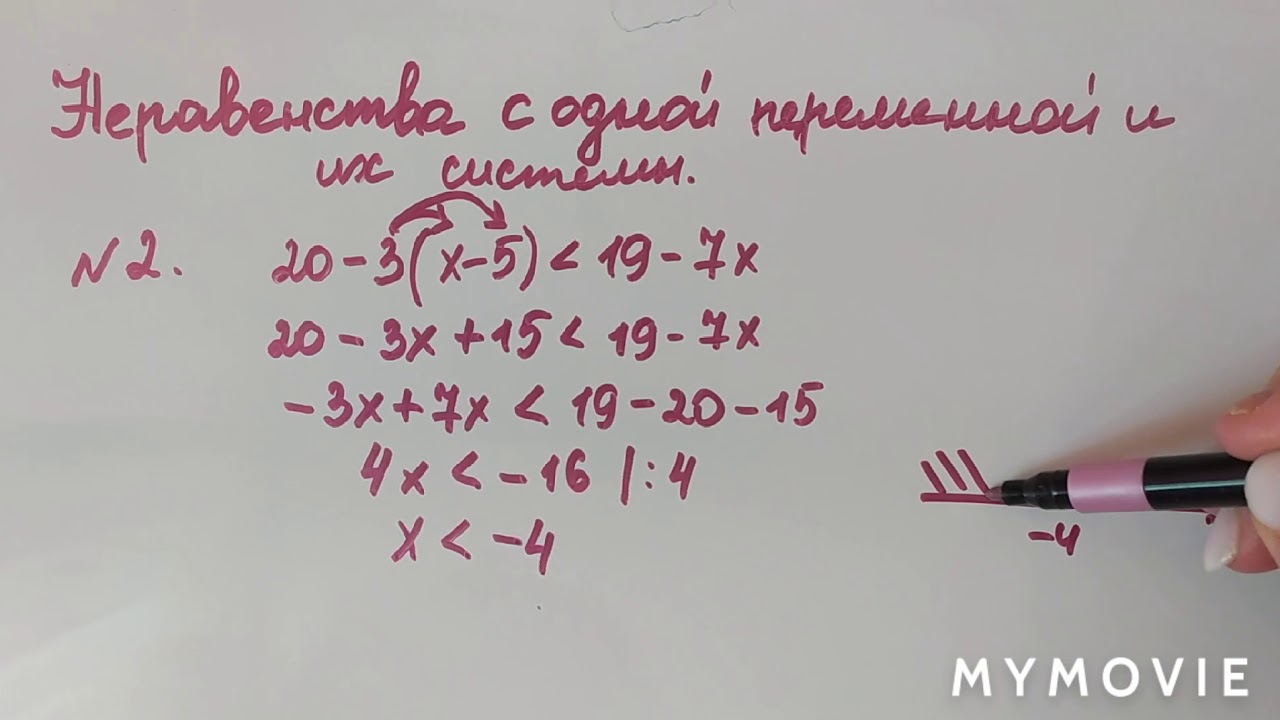 Неравенства с одной переменной и
их системы.
N2. 20-3(x-5)<19-7x
20-3x+15<19-7x
-3x+7x<19-20-15
4x<-16 |:4
x<-4
-4
MYMOVIE